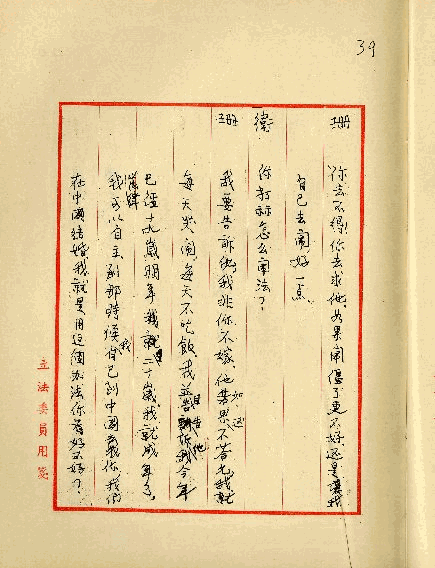 39
珊 你去不得，你去求他，如果鬧僵了更不好，还是讓我
自己去鬧好一点。
衛 你打祘怎么鬧法？
珊 我要告訴他我非你不嫁，他如果还不答允我就
每天哭鬧，每天不吃飯，我並且警告他我今年
已經十九歲，明年我就二十歲，我就成年了，
我可以自主，到那時候我自己到中國義你，我們
在中國結婚，我就是用這個办法，你看好不好？
立法委員用箋